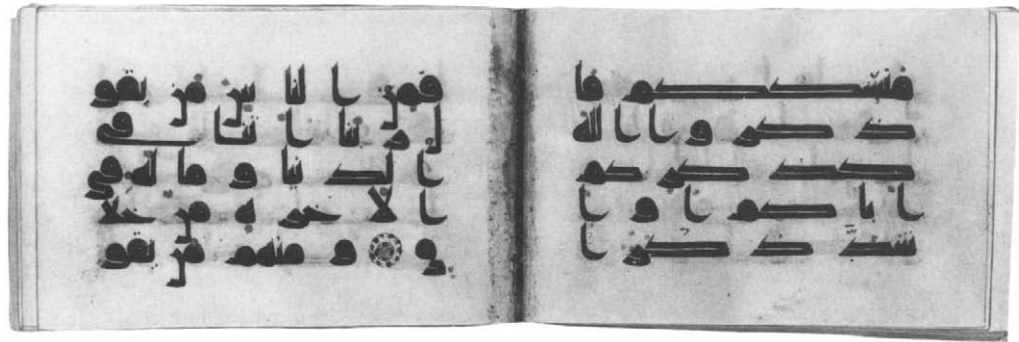 منسككم فا
ذكروا الله
كذكركم
اباكم او ا
شد ذكرا
فمن الناس من يقو
ل ربنا اتنا في
الدنيا و ما له في
الاخرة من خلا
ق و منهم من يقو